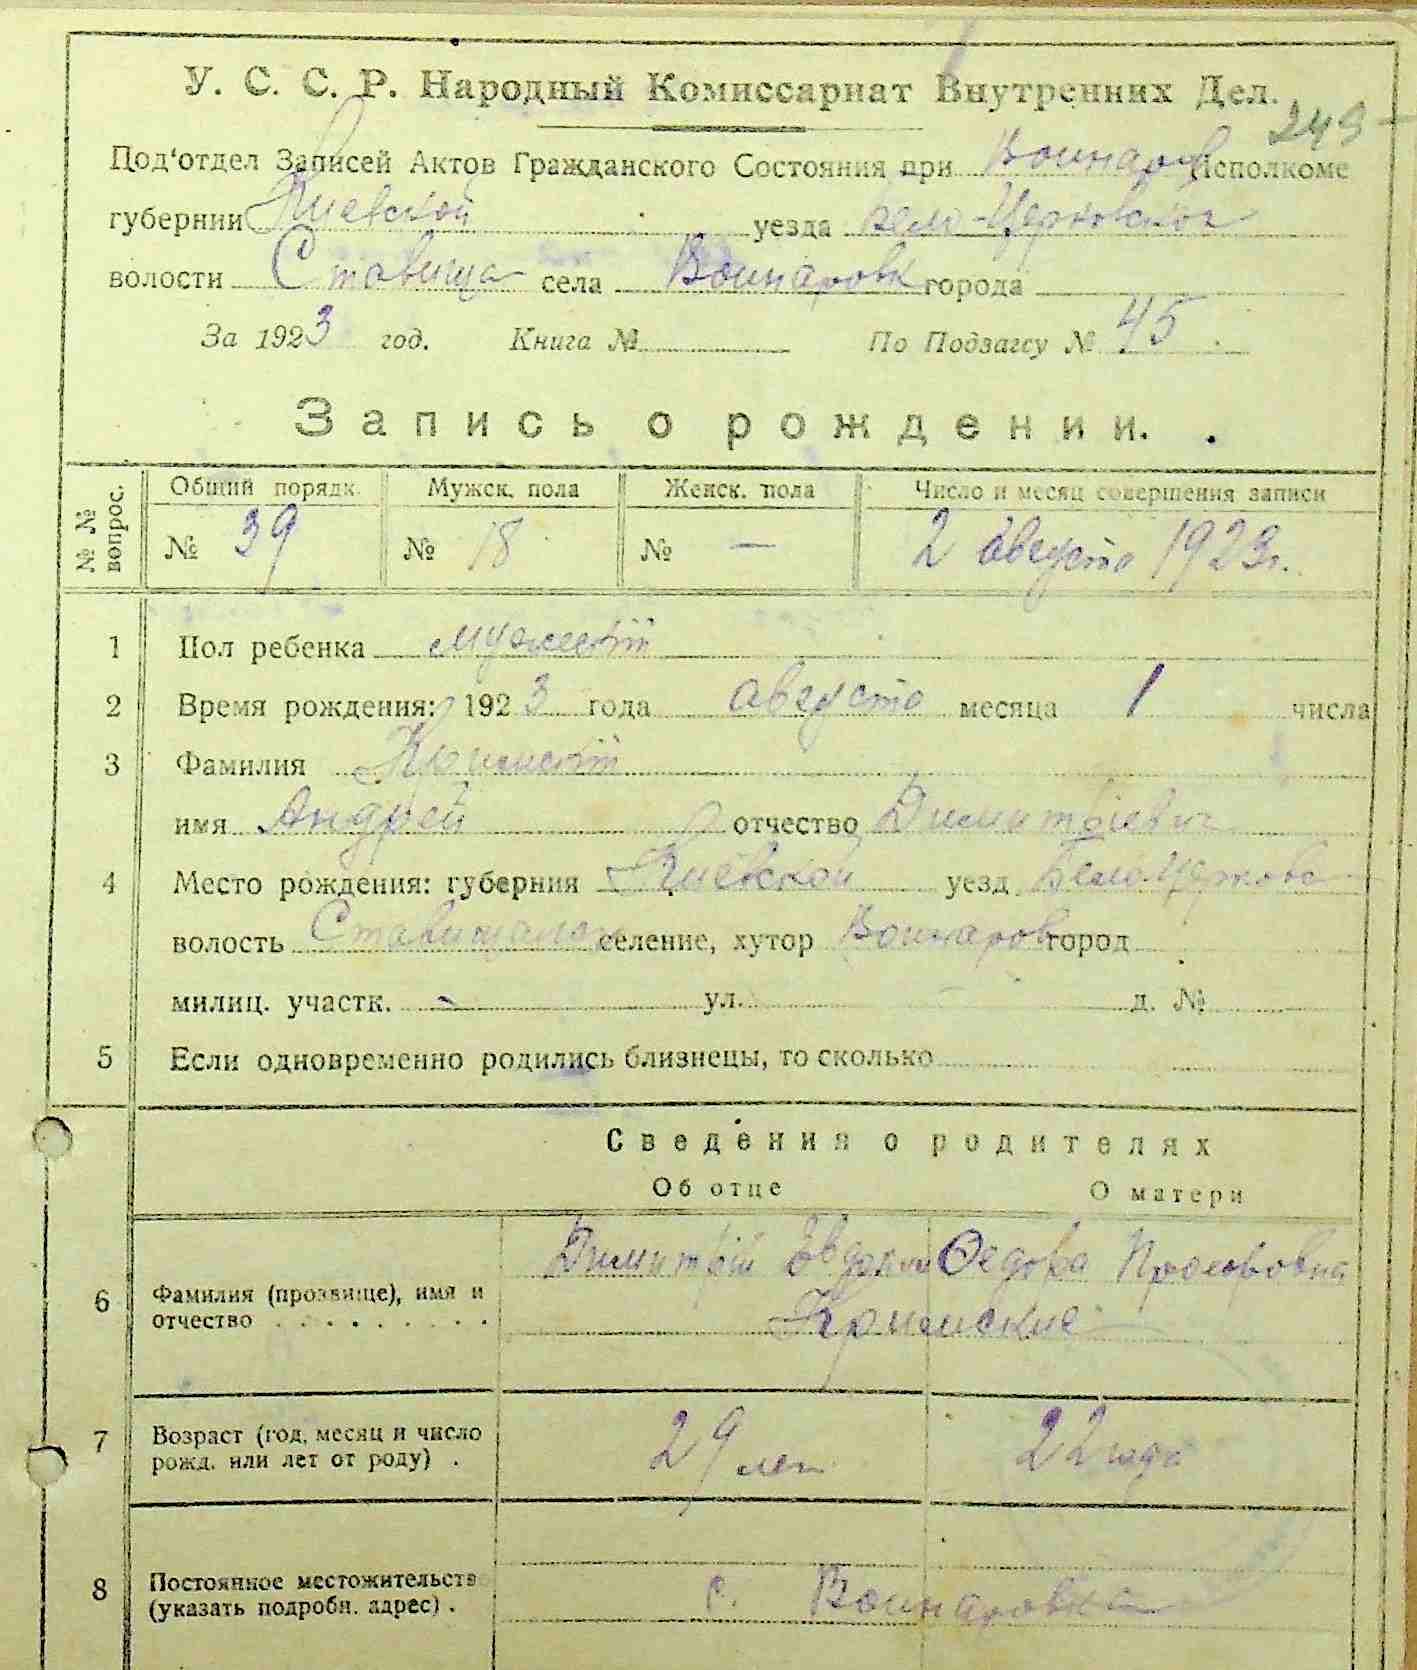 У. С. С. Р. Народный Комиссариат Внутренних Дел.
249
Под'отдел Записей Актов Гражданского Состояния при Воинаров Исполкоме
губернии Киевской уезда Бело-Церковской
волости Ставища села Воинаровк города
За 1923 год. Книга № По Подзагсу № 45
Запись о рождении.
№ № вопрос.
Общий порядк. Мужск. пола Женск. пола Число и месяц совершения записи
№ 39 № 18 № — 2 августа 1923г.
1 Пол ребенка мужескій
2 Время рождения: 1923 года августа месяца 1 числа
3 Фамилия Кримскій
имя Андрей отчество Димитріевич
4 Место рождения: губерния Киевской уезд Белоцерковс
волость селение, хутор Воинаров город
милиц. участк. - ул. д. №
5 Если одновременно родились близнецы, то сколько
Сведения о родителях
Об отце О матери
6 Фамилия (прозвище), имя и отчество
Димитрій Евдоким Федора Прохоровна
Кримские
7 Возраст (год, месяц и число рожд. или лет от роду) .
29 лет 22 года
8 Постоянное местожительств (указать подробн. адрес) .
с. Воинаровка